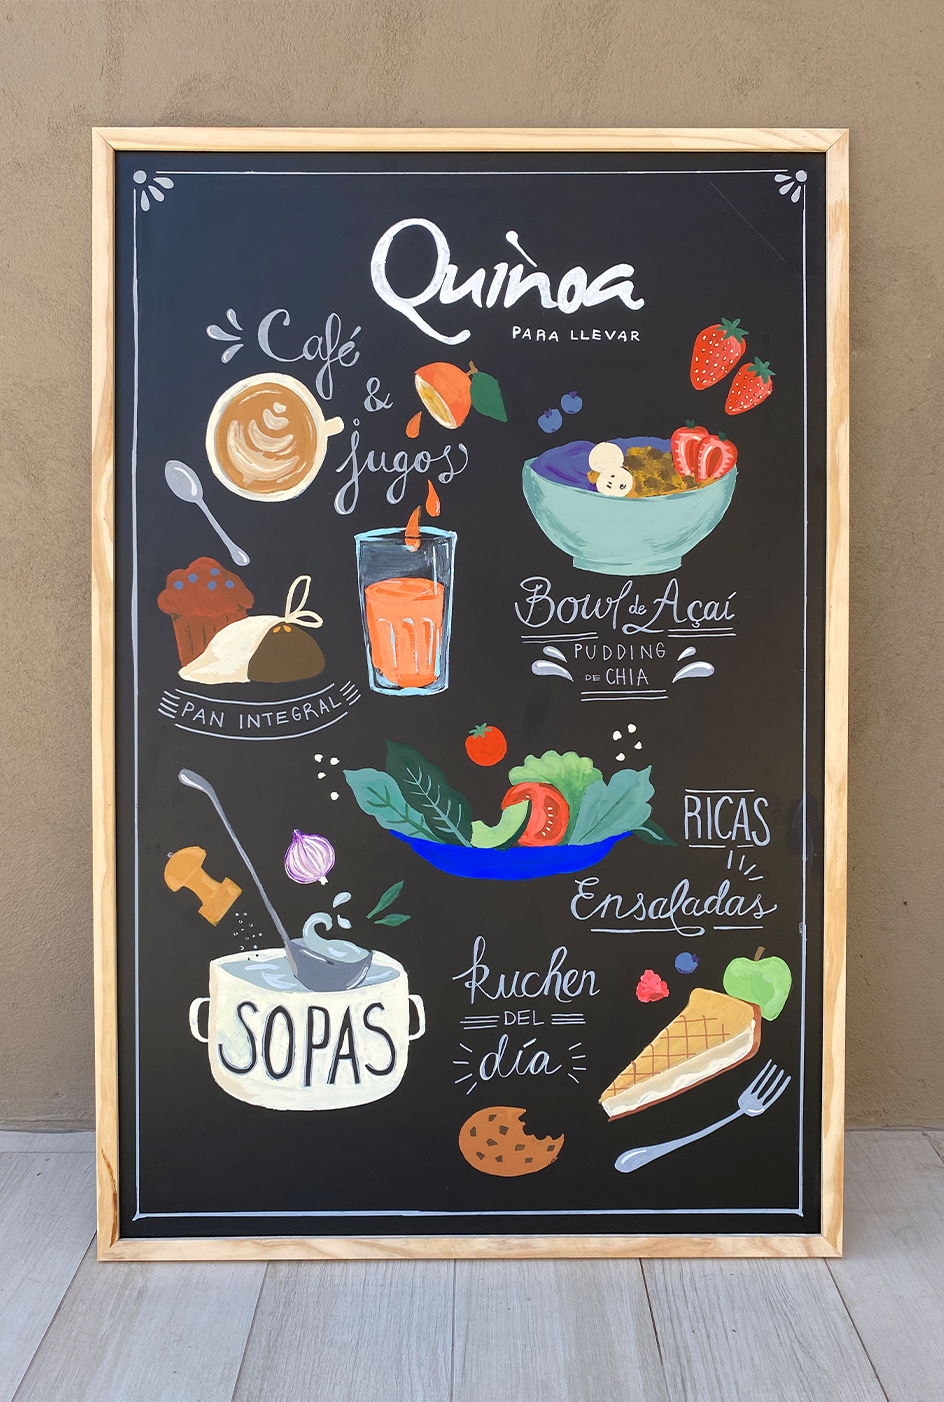 Quinoa
PARA LLEVAR
Café
&
jugos
Bowl de Açaí
PUDDING
DE CHIA
PAN INTEGRAL
RICAS
Ensaladas
SOPAS
kuchen
DEL
día